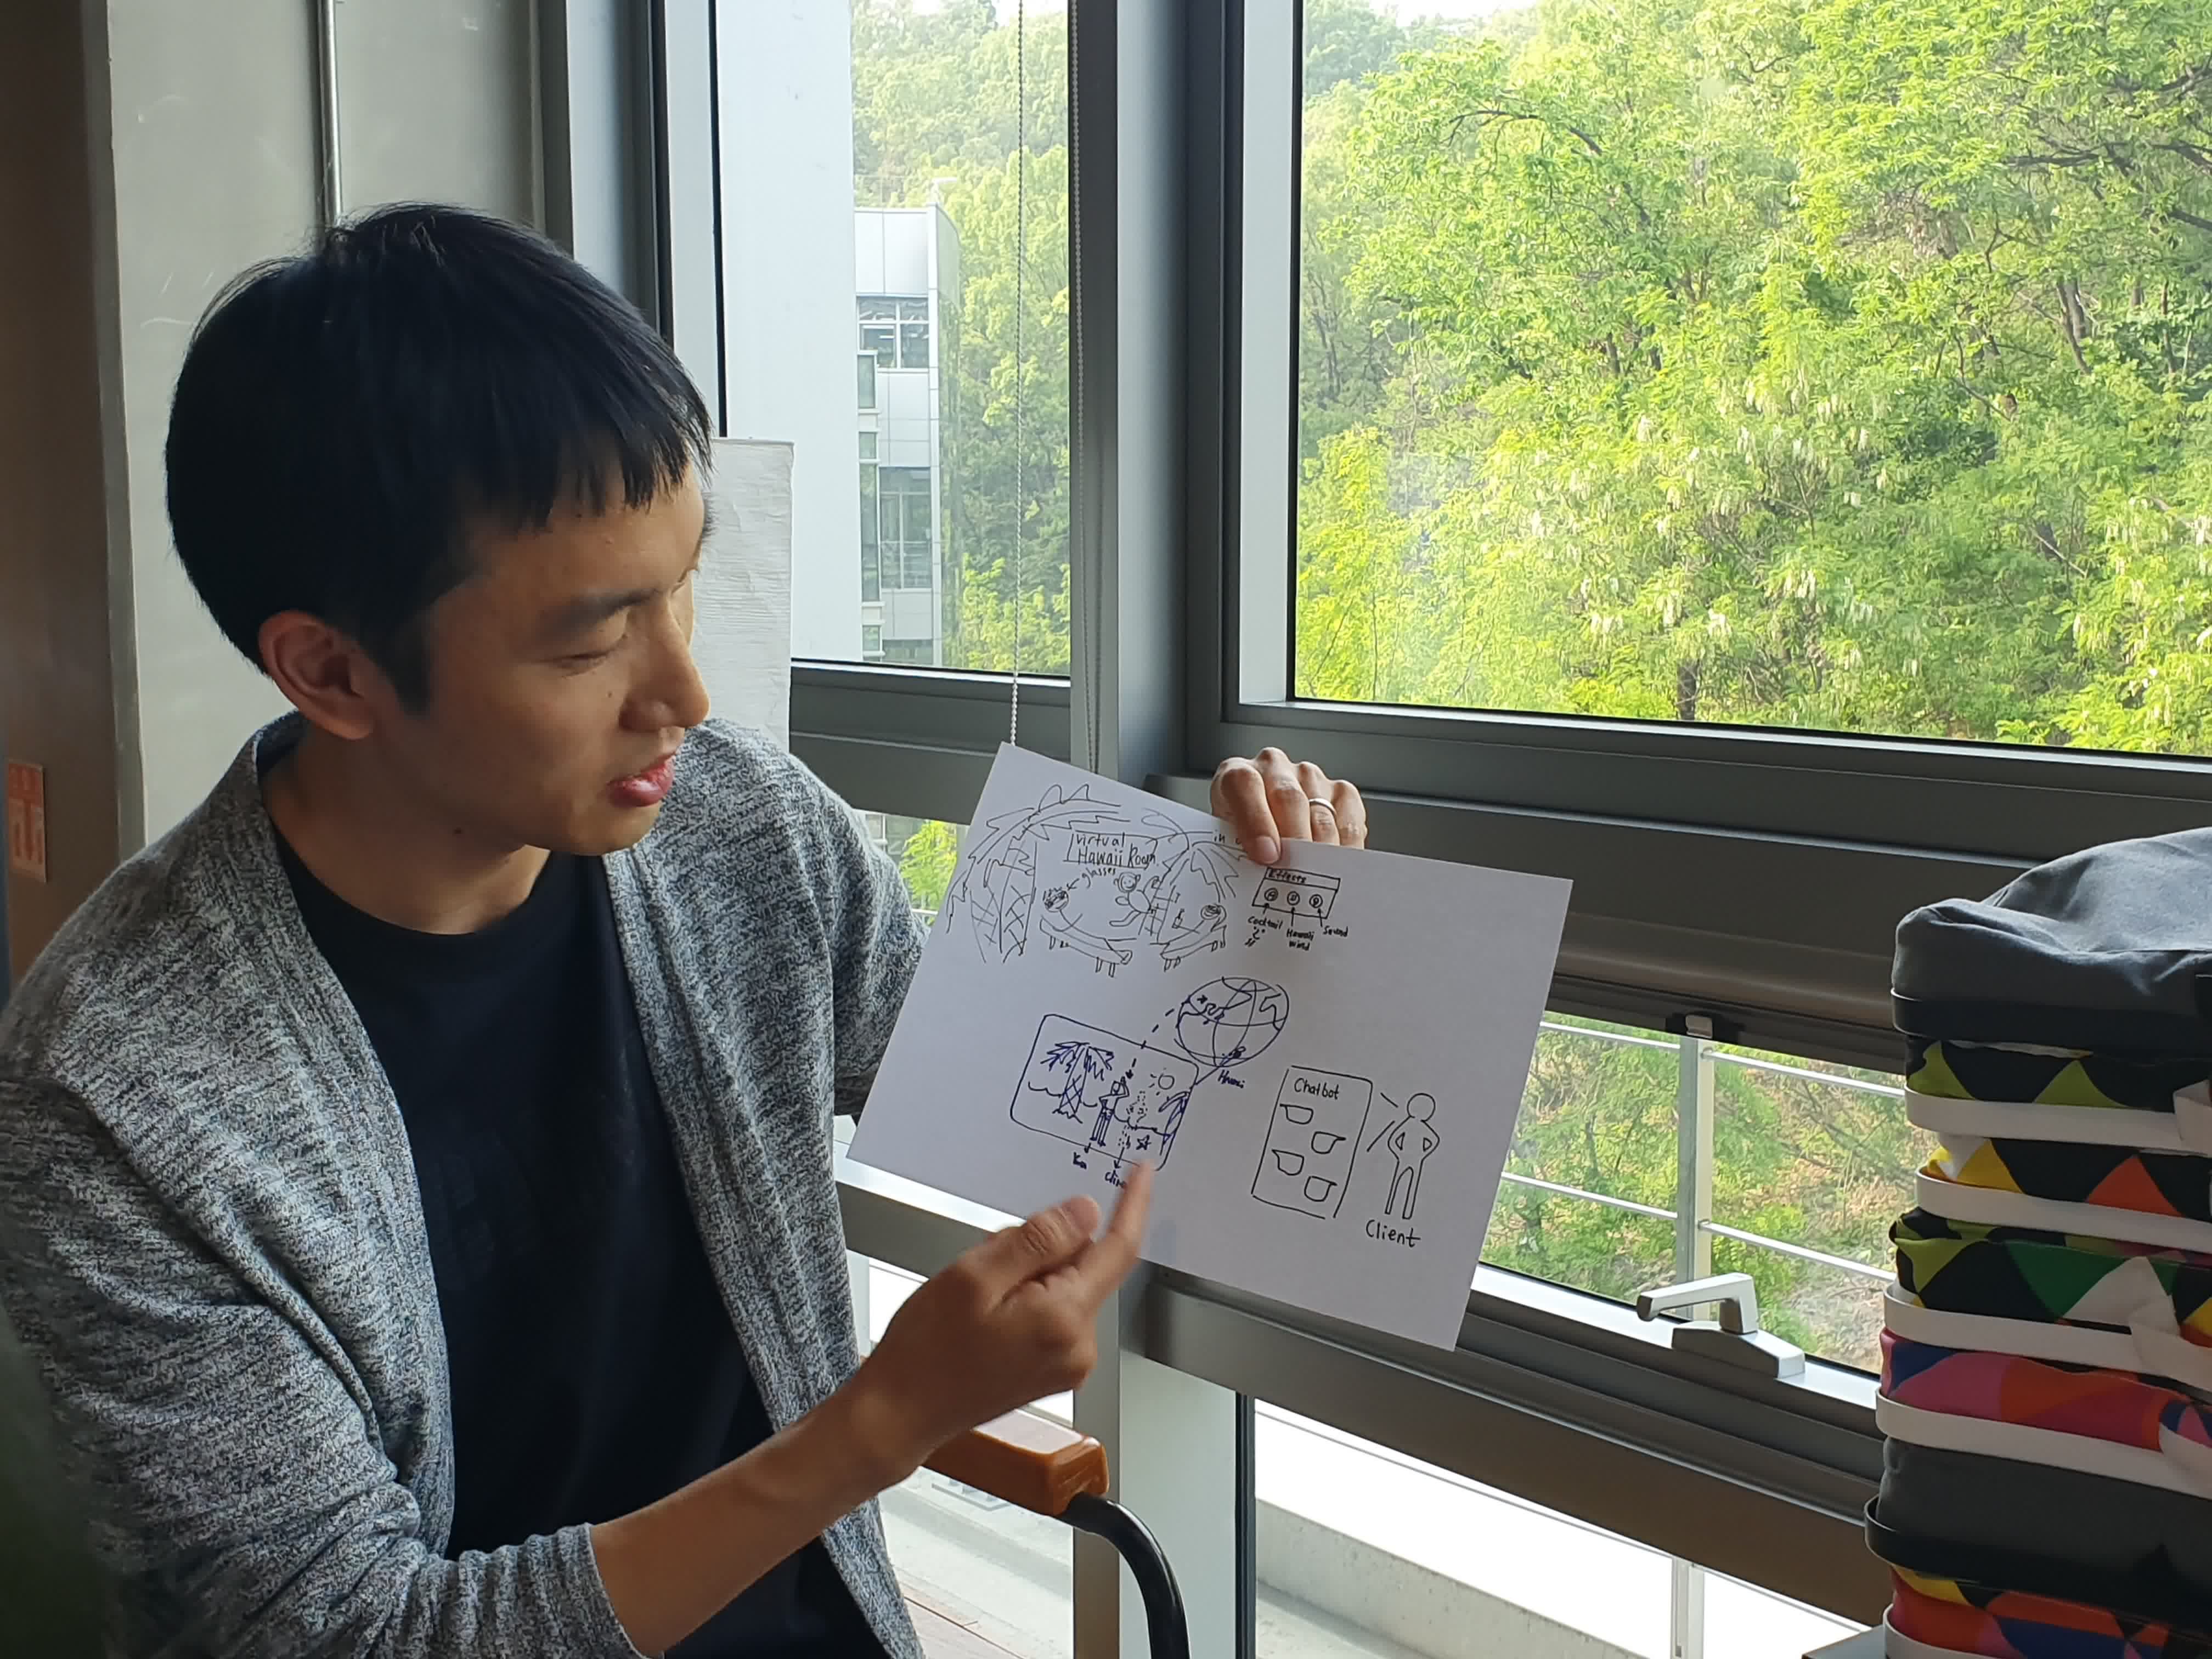 virtual
Hawaii Room
in
glasses
Effects
Cocktail
Hawaii
wind
Sound
Hawaii
Chatbot
Client